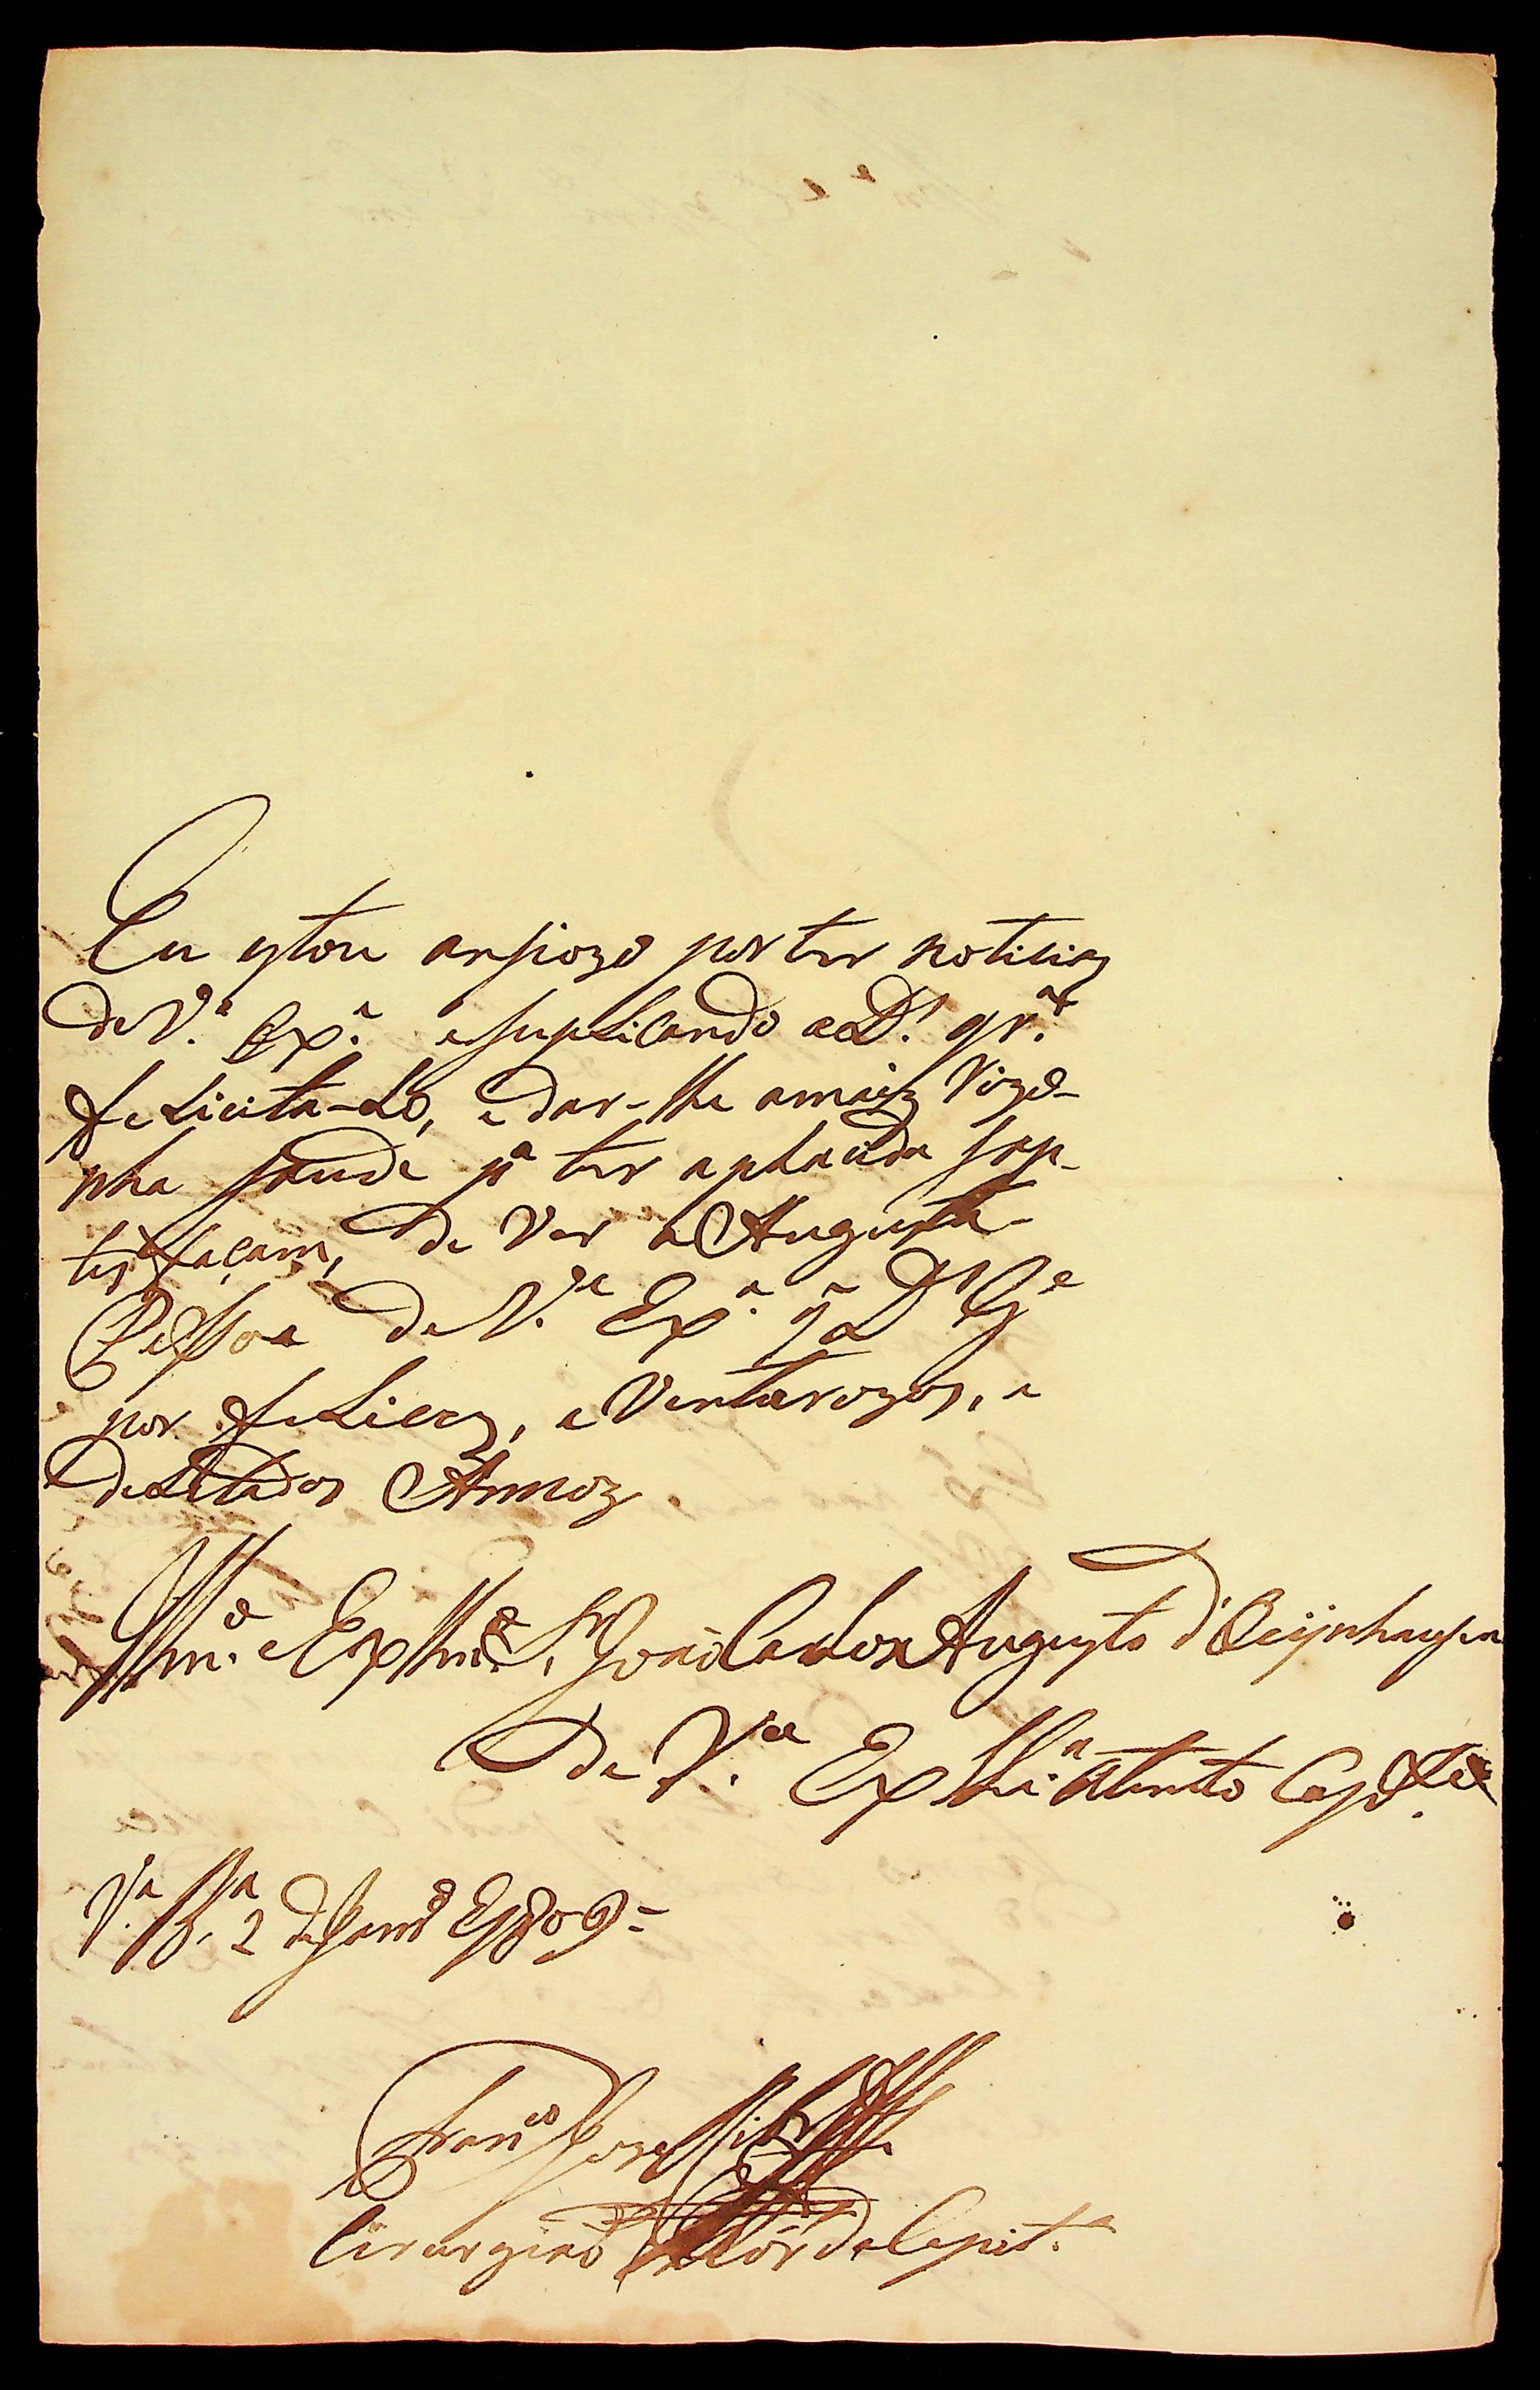 Eu estou ansiozo por ter noticias
de V.ª Ex.ª e suplicando a D.s qr.ª
felicita-lo, e dar-lhe a maiz vigo-
nha saude p.ª ter a placida sap-
tisfaçam, de ver a Augusta
Pessoa de V.ª Ex.ª q̃ D.s G.e
por felices, e Venturozos, e
delatados Annoz
Illm.º e Exllm.º S.r João Carlos Augusto d'Oeijnhausen
De V.ª Exll.ª Atento
V.ª B.ª 2 de Janr.º de 1809=
Fran.co Joze
Cirurgião Mór da Capit.ª